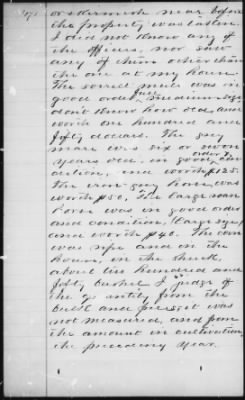 or skirmish near before
the property was taken.
I did not know any of
the officers, nor saw
any of them other than
the one at my house.
The sorrel mule was in
good order, full medium size
don't know how old, and
worth one hundred and
fifty dollars. The grey
mare was six or seven
years old, in good order, con
dition, and worth $125.
The iron-grey horse was
worth $150, The large roan
horse was in good order
and condition, large size,
and worth $140. The corn
was ripe and on the
house, in the shuck,
about two hundred and
fifty bushels I judge of
the quantity from the
bulk and present it was
not measured, and from
the amount in cultivation,
the preceding year.